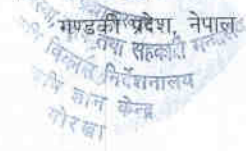 गण्डकी प्रदेश, नेपाल
तथा सहकारी
कृषि विकास निर्देशनालय
कृषि ज्ञान केन्द्र
गोरखा